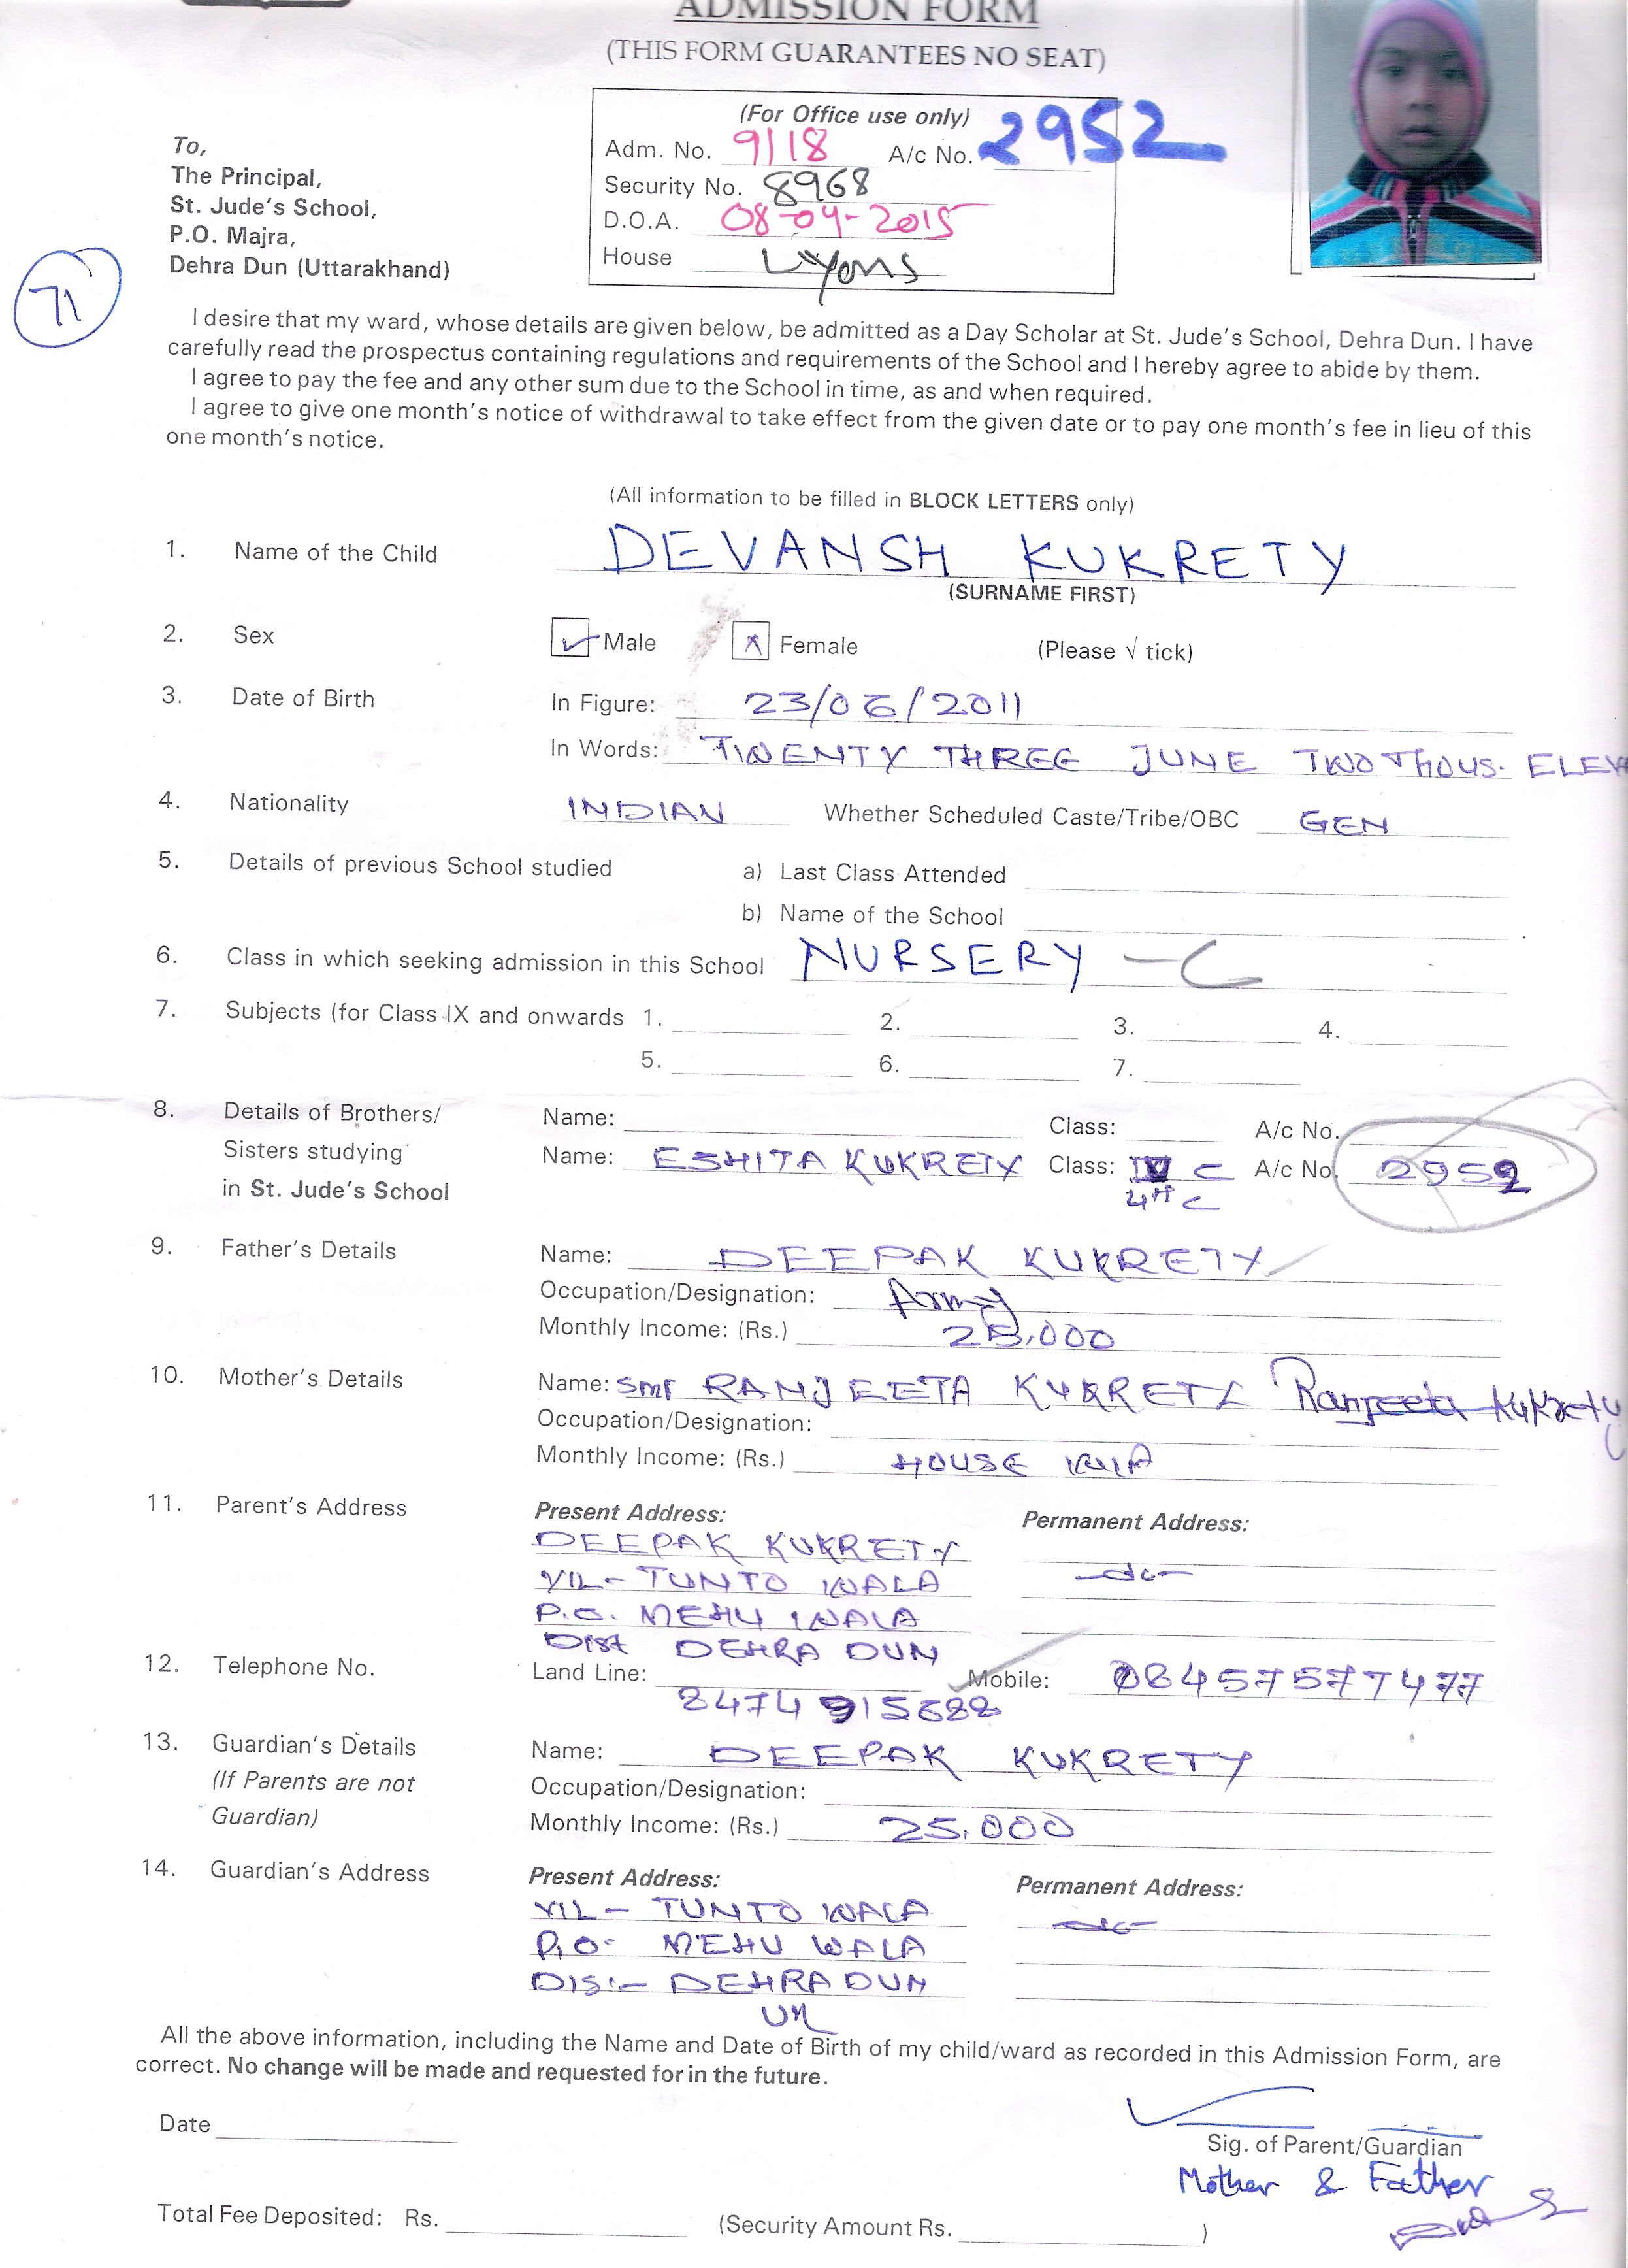 ADMISSION FORM
(THIS FORM GUARANTEES NO SEAT)
(For Office use only)
Adm. No. 9118 A/c No. 2952
Security No. 8968
D.O.A. 08-04-2015
House Lyons
To,
The Principal,
St. Jude's School,
P.O. Majra,
Dehra Dun (Uttarakhand)
71
I desire that my ward, whose details are given below, be admitted as a Day Scholar at St. Jude's School, Dehra Dun. I have
carefully read the prospectus containing regulations and requirements of the School and I hereby agree to abide by them.
I agree to pay the fee and any other sum due to the School in time, as and when required.
I agree to give one month's notice of withdrawal to take effect from the given date or to pay one month's fee in lieu of this
one month's notice.
(All information to be filled in BLOCK LETTERS only)
1. Name of the Child DEVANSH KUKRETY
(SURNAME FIRST)
2. Sex Male Female (Please √ tick)
3. Date of Birth In Figure: 23/06/2011
In Words: TWENTY THREE JUNE TWO Thous. ELEV
4. Nationality INDIAN Whether Scheduled Caste/Tribe/OBC GEN
5. Details of previous School studied a) Last Class Attended
b) Name of the School
6. Class in which seeking admission in this School NURSERY - C
7. Subjects (for Class IX and onwards 1. 2. 3. 4.
5. 6. 7.
8. Details of Brothers/ Name: Class: A/c No.
Sisters studying Name: ESHITA KUKRETY Class: IV C A/c No. 2952
in St. Jude's School 4th C
9. Father's Details Name: DEEPAK KUKRETY
Occupation/Designation: Army
Monthly Income: (Rs.) 25,000
10. Mother's Details Name: SMT RANJEETA KUKRETY Ranjeeta Kukrety
Occupation/Designation:
Monthly Income: (Rs.) HOUSE
11. Parent's Address Present Address: Permanent Address:
DEEPAK KUKRETY
VIL- TUNTO WALA -do-
P.O. MEHU WALA
Dist DEHRA DUN
12. Telephone No. Land Line: Mobile: 08457577477
8474915688
13. Guardian's Details Name: DEEPAK KUKRETY
(If Parents are not Occupation/Designation:
Guardian) Monthly Income: (Rs.) 25,000
14. Guardian's Address Present Address: Permanent Address:
VIL- TUNTO WALA -do-
P.O- MEHU WALA
DIS:- DEHRA DUN
UK
All the above information, including the Name and Date of Birth of my child/ward as recorded in this Admission Form, are
correct. No change will be made and requested for in the future.
Date
Sig. of Parent/Guardian
Mother & Father
Total Fee Deposited: Rs. (Security Amount Rs. )